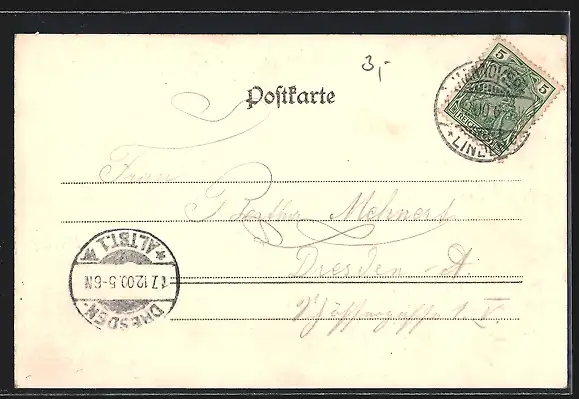 3,-
Postkarte
5 5
HANNOVER
* LINDEN
Frau
Bertha Mehnert
Dresden - A.
Schössergasse 1 V.
DRESDEN-
* ALTST. 1 *
17.12.00.5-6N